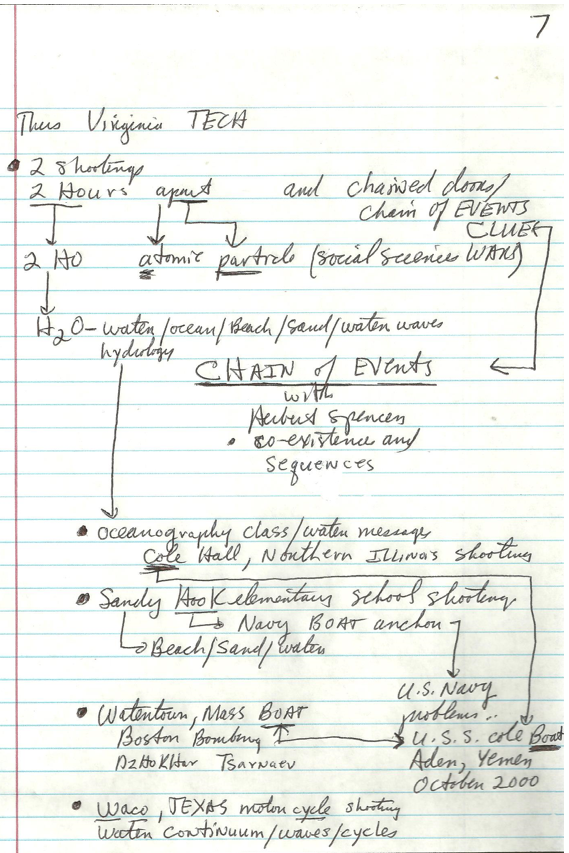 7
Thus Virginia TECH
• 2 shootings
2 Hours apart and chained doors/
chain of EVENTS
CLUE
2 HO atomic particle (social sciences WARS)
H2O - water/ocean/Beach/sand/water waves
hydrology
CHAIN of Events
with
Herbert Spencer
• co-existence and
sequences
• oceanography class/water messages
Cole Hall, Northern Illinois shooting
• Sandy HooK elementary school shooting
Navy BOAT anchor
Beach/Sand/water
U.S. Navy
problems..
• Watertown, Mass BOAT
Boston Bombing U.S.S. cole Boat
DzHoKHar Tsarnaev Aden, Yemen
October 2000
• Waco, TEXAS motor cycle shooting
Water continuum/waves/cycles